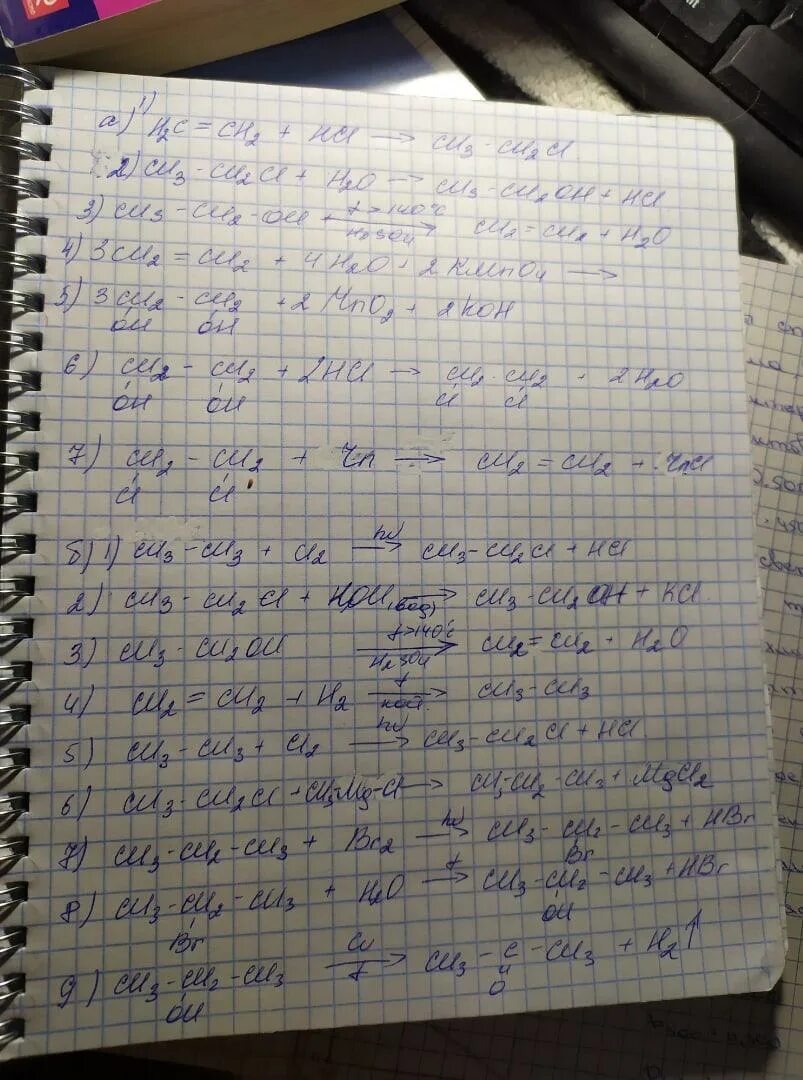 а) 1) H₂C = CH₂ + HCl → CH₃ - CH₂Cl
2) CH₃ - CH₂Cl + H₂O → CH₃ - CH₂OH + HCl
3) CH₃ - CH₂ - OH + t>140°C H₂SO₄ → CH₂ = CH₂ + H₂O
4) 3CH₂ = CH₂ + 4H₂O + 2KMnO₄ →
5) 3CH₂ - CH₂ + 2MnO₂ + 2KOH
OH OH
6) CH₂ - CH₂ + 2HCl → CH₂ - CH₂ + 2H₂O
OH OH Cl Cl
7) CH₂ - CH₂ + Zn → CH₂ = CH₂ + ZnCl
Cl Cl
б) 1) CH₃ - CH₃ + Cl₂ hν → CH₃ - CH₂Cl + HCl
2) CH₃ - CH₂Cl + (вод) → CH₃ - CH₂OH + KCl
3) CH₃ - CH₂OH t>140°C H₂SO₄ → CH₂ = CH₂ + H₂O
4) CH₂ = CH₂ + H₂ t кат. → CH₃ - CH₃
5) CH₃ - CH₃ + Cl₂ hν → CH₃ - CH₂Cl + HCl
6) CH₃ - CH₂Cl + CH₃-Mg-Cl → CH₃-CH₂-CH₃ + MgCl₂
7) CH₃ - CH₂ - CH₃ + Br₂ hν → CH₃ - CH₂ - CH₃ + HBr
Br
8) CH₃ - CH₂ - CH₃ + H₂O t → CH₃ - CH₂ - CH₃ + HBr
Br OH
9) CH₃ - CH₂ - CH₃ Cu t → CH₃ - C - CH₃ + H₂↑
OH O